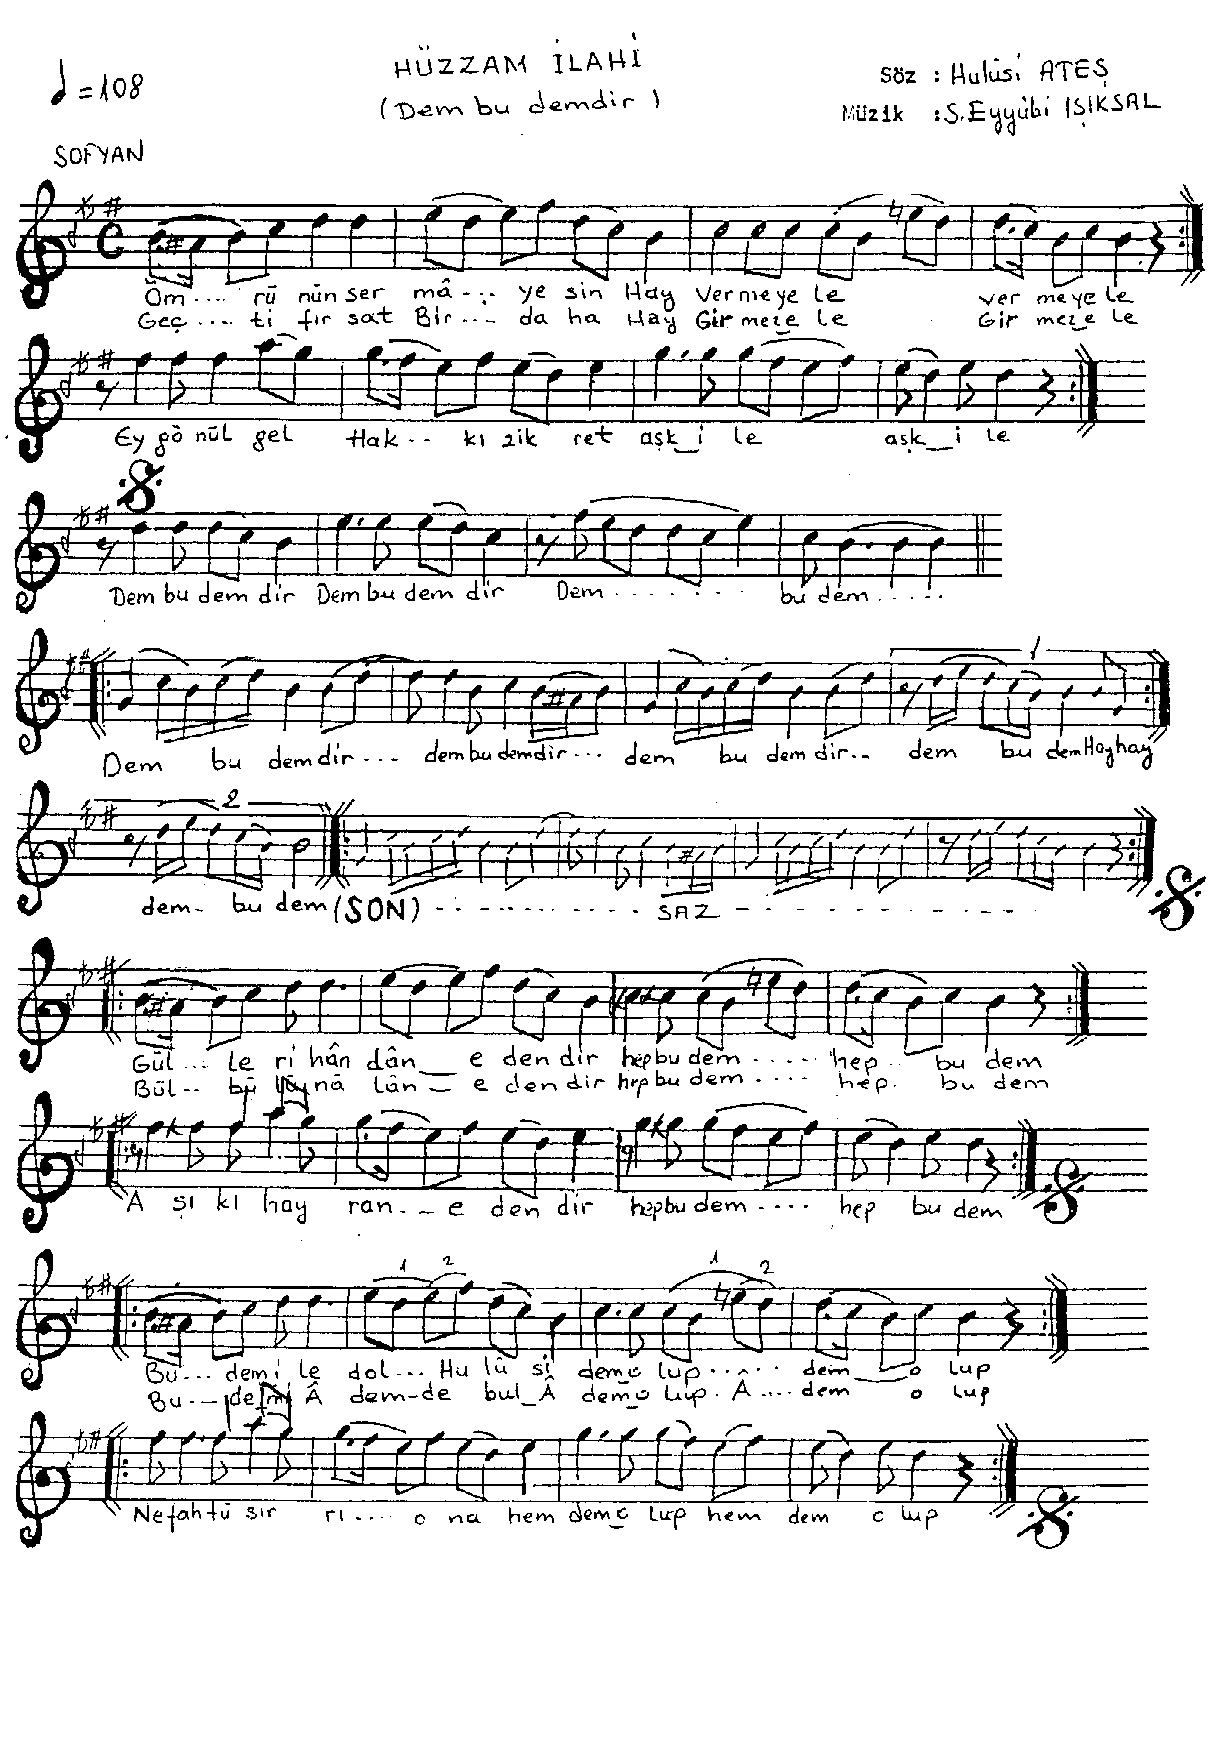 ♩=108
HÜZZAM İLAHİ
(Dem bu demdir)
Söz : Hulûsi ATEŞ
Müzik : S.Eyyübi IŞIKSAL
SOFYAN
Öm.... rü nün ser mâ-.. ye sin Hay Vermeye le ver meye le
Geç.... ti fır sat Bir..- da ha Hay Girmeze le Gir meze le
Ey gö nül gel Hak-- kı zik ret aşk_i le aşk_i le
Dem bu dem dir Dem bu dem dir Dem ....... bu dem .....
1
Dem bu demdir... dem bu demdir... dem bu demdir.. dem bu dem Hay hay
2
dem- bu dem (SON) - - - - - - SAZ - - - - - - -
Gül... le ri hân dân_ e den dir hep bu dem ..... hep.. bu dem
Bül.. bü nâ lân_ e den dir hep bu dem .... hep. bu dem
A şı kı hay ran.._ e den dir hep bu dem.... hep bu dem
1 2 1 2
Bu... dem i le dol... Hu lû si dem o lup ..... dem_o lup
Bu.._ dem Â dem-de bul_Â dem o lup. Â .... dem o lup
Nefahtü sır rı.... o na hem dem o lup hem dem o lup